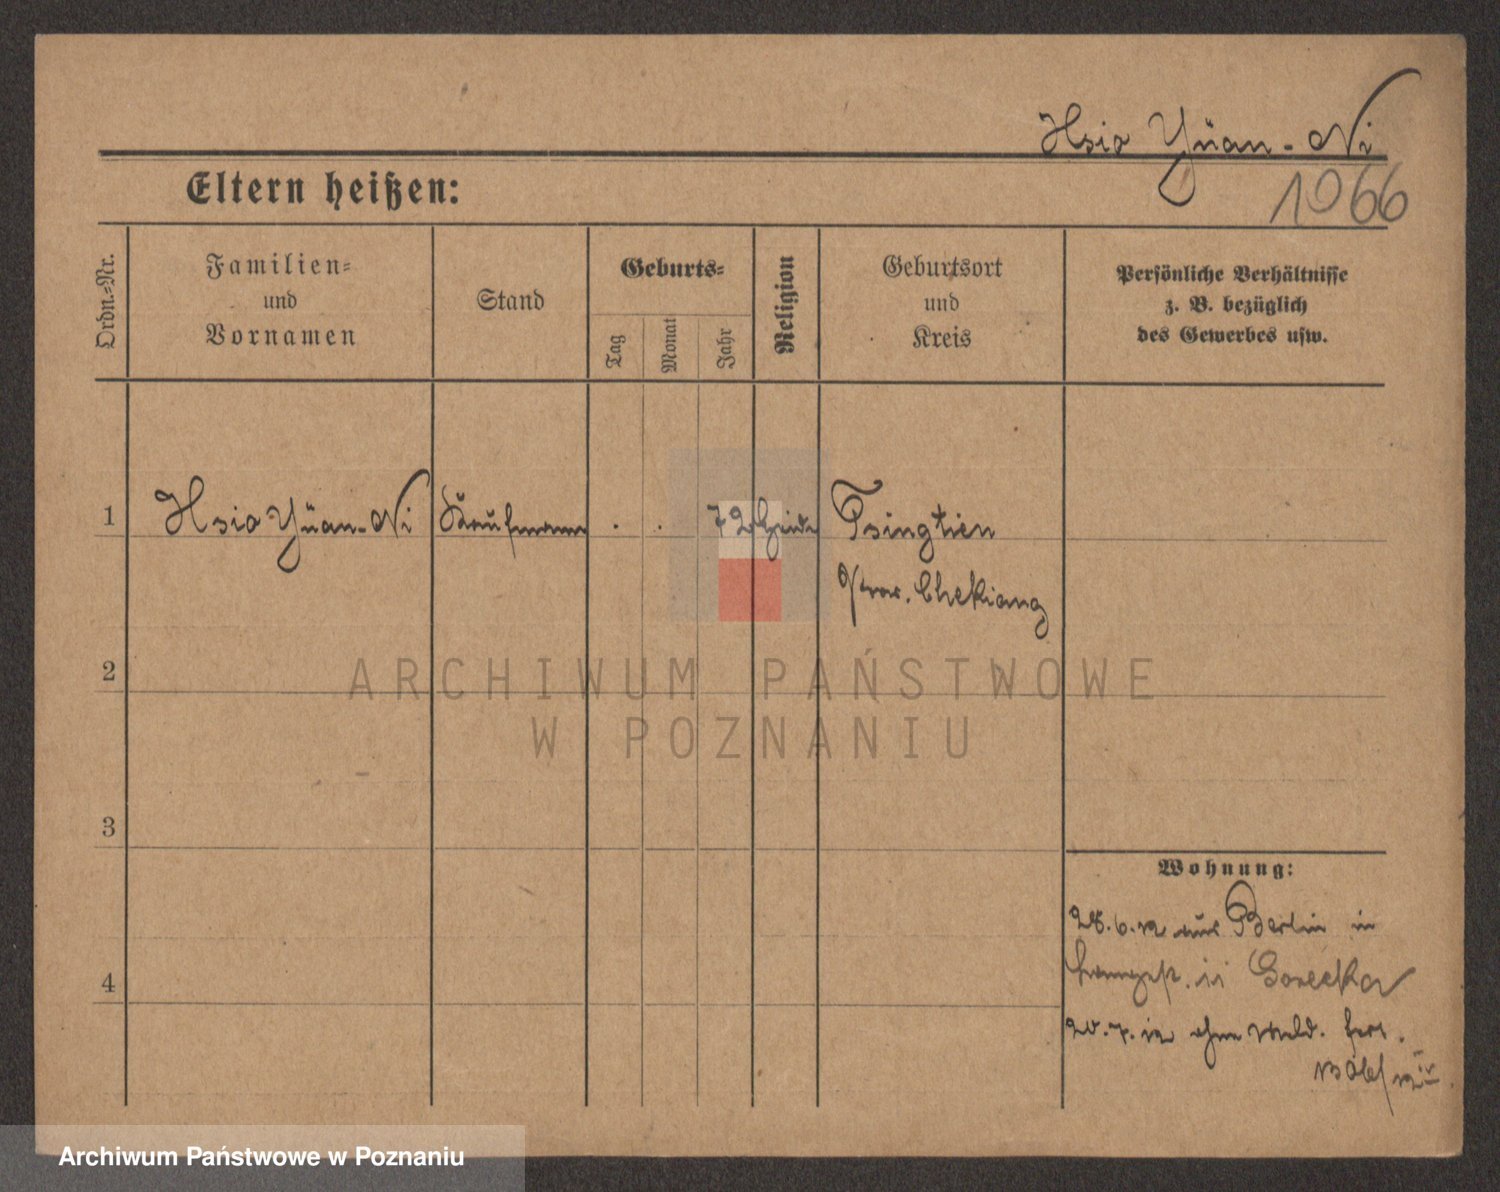 Hsio Yüan-Ni
1066
Eltern heißen:
Ordn.-Nr.
Familien-
und
Vornamen
Stand
Geburts-
Tag
Monat
Jahr
Religion
Geburtsort
und
Kreis
Persönliche Verhältnisse
z. B. bezüglich
des Gewerbes usw.
1 Hsio Yüan-Ni Kaufmann . . 72 Heide Tsingtien
Prov. Chekiang
2
3
4
Wohnung:
28.6.12 aus Berlin in
11 Gorecka
20.7.12 ohne Meld. fort.
ARCHIWUM PAŃSTWOWE
W POZNANIU
Archiwum Państwowe w Poznaniu